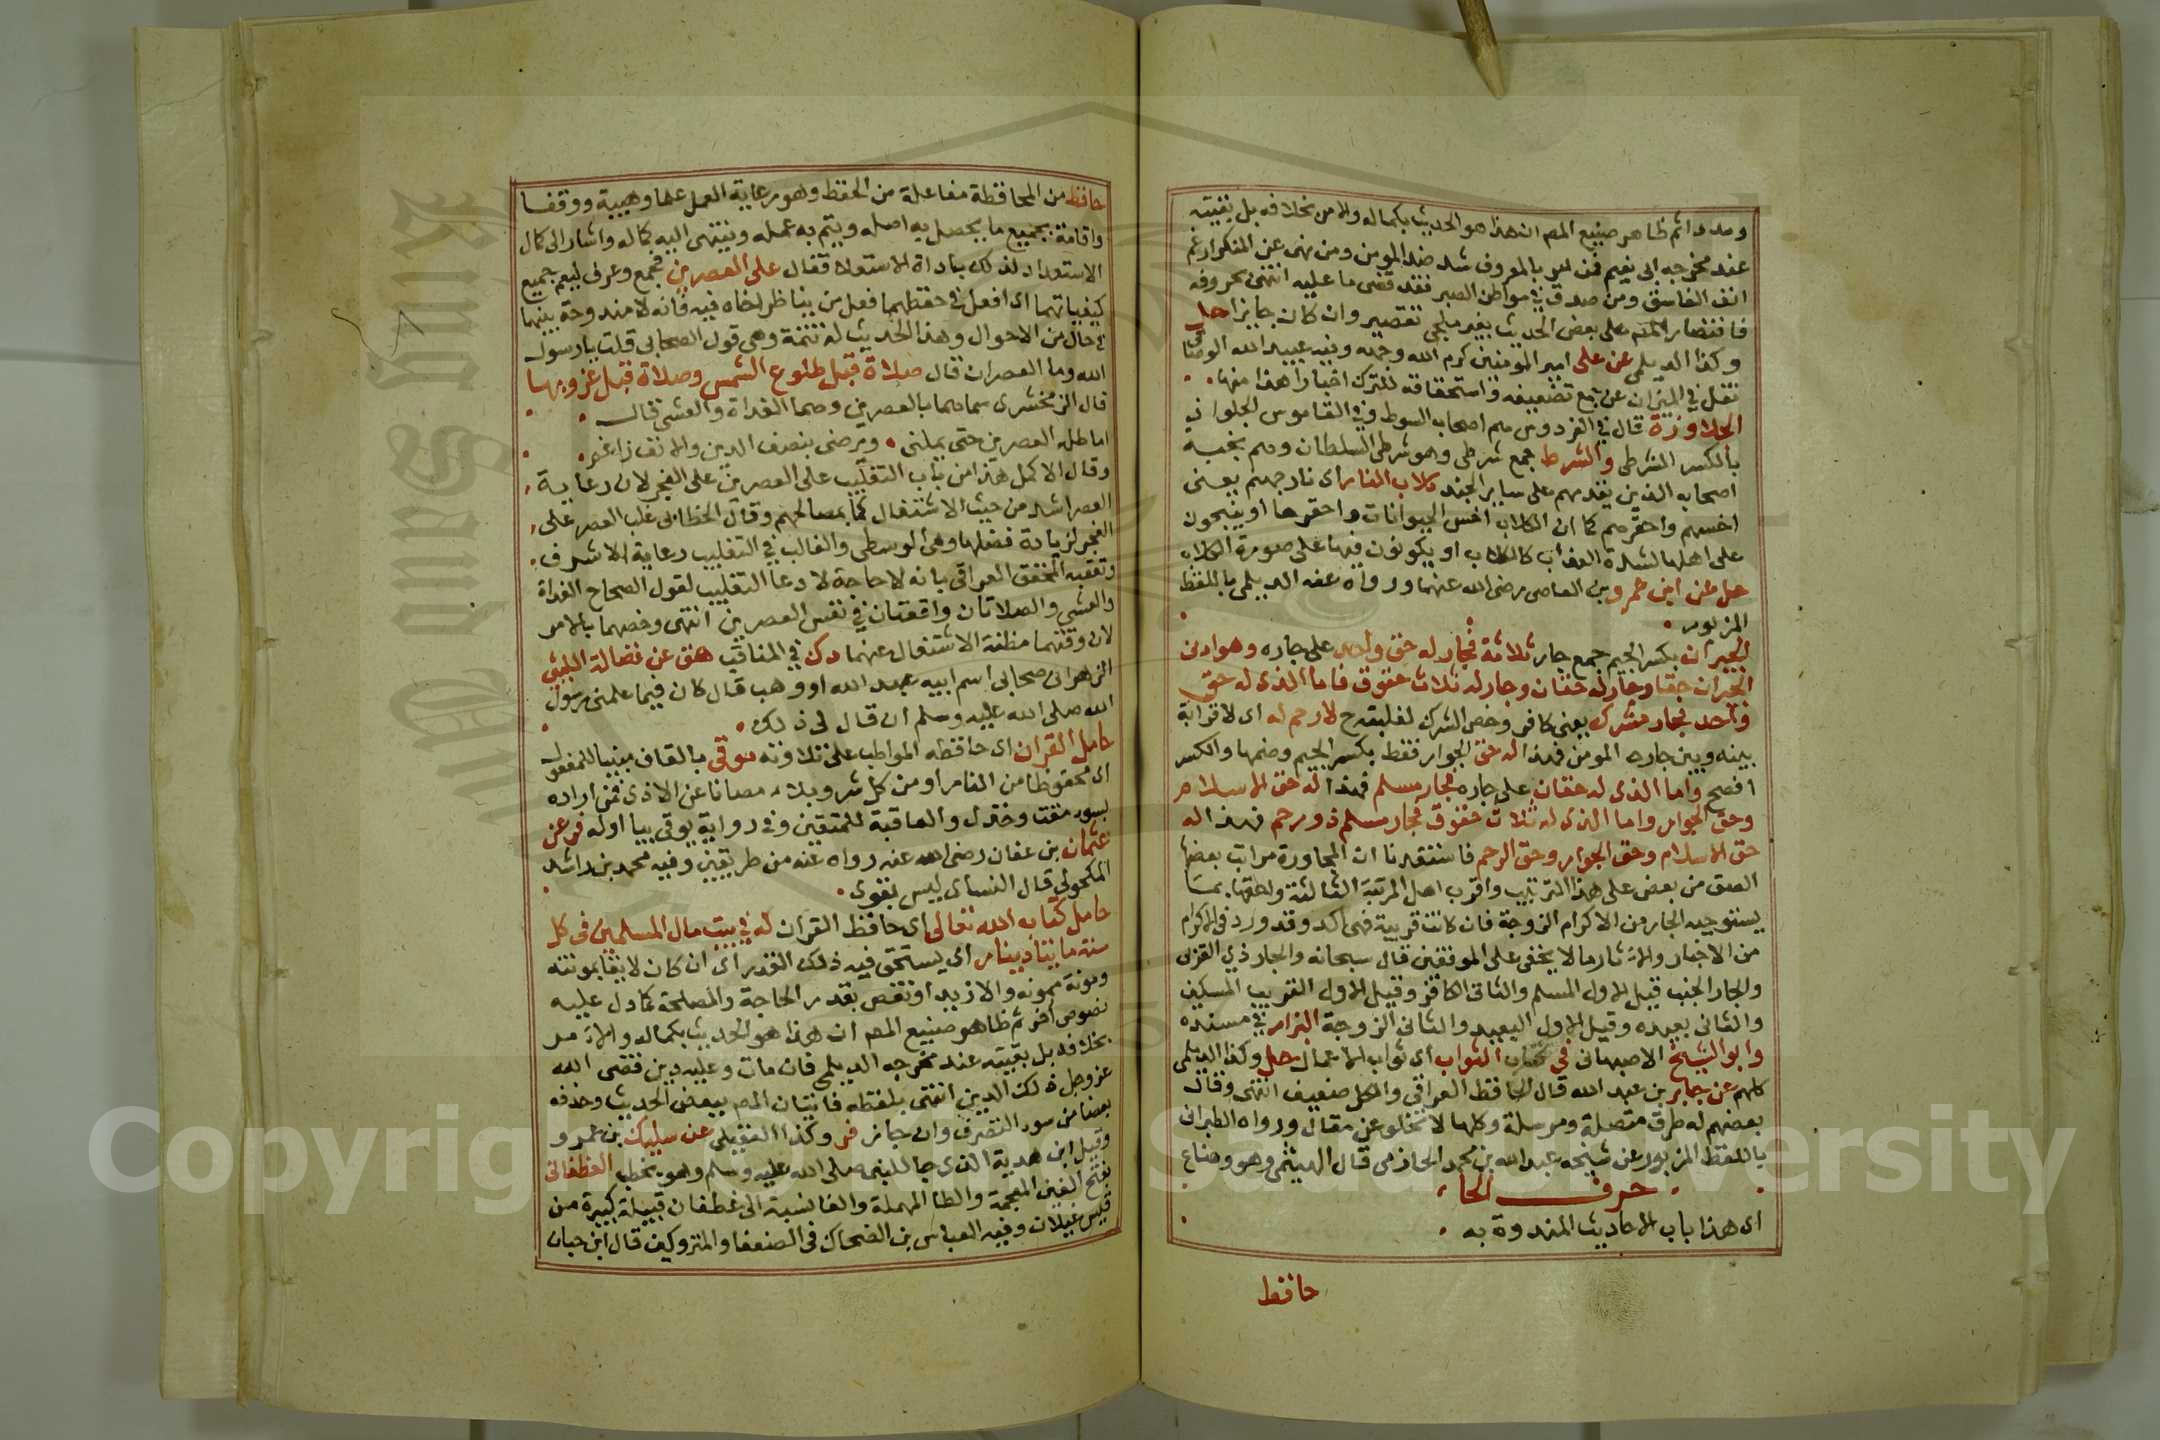 ومددا ثم ظاهر صنيع المص ان هذا هو الحديث بكماله والامر بخلافه بل بقيته
عند مخرجه ابى نعيم فمن امر بالمعروف شد ضد المومن ومن نهى عن المنكر ارغم
انف الفاسق ومن صدق في مواطن الصبر فقد قضى ما عليه انتهى بحروفه
فاقتصار المص على بعض الحديث بغير ملجى تقصير وان كان جايزا حل
وكذا الديلمى عن على امير المومنين كرم الله وجهه وفيه عبيد الله الوصافي
نقل في الميزان عن جمع تضعيفه واستحقاقه للترك اخبارا هذا منها
الجلاوزة قال في الفردوس هم اصحاب السوط وفي القاموس الجلواز
بالكسر الشرطى والشرط جمع شرطى وهو شرطى السلطان وهم نخبة
اصحابه الذين يقدمهم على ساير الجند كلاب النار اى نار جهنم يعنى
اخسهم واحقرهم كما ان الكلاب اخس الحيوانات واحقرها او ينبحون
على اهلها لشدة العذاب كالكلاب او يكونون فيها على صورة الكلاب
حل عن ابن عمرو بن العاصى رضى الله عنهما ورواه عنه الديلمى باللفظ
المزبور
الجيران بكسر الجيم جمع جار ثلاثة فجار له حق واحد على جاره وهو ادنى
الجيران حقا وجار له حقان وجار له ثلاث حقوق فاما الذى له حق
واحد فجار مشرك يعنى كافر وخص الشرك لغلبته ح لا رحم له اى لا قرابة
بينه وبين جاره المومن فهذا له حق الجوار فقط بكسر الجيم وضمها والكسر
افصح واما الذى له حقان على جاره فجار مسلم فهذا له حق الاسلام
وحق الجوار واما الذى له ثلاث حقوق فجار مسلم ذو رحم فهذا له
حق الاسلام وحق الجوار وحق الرحم فاستفدنا ان المجاورة مراتب بعضها
الصق من بعض على هذا الترتيب واقرب اهل المرتبة الثالثة واحقها بما
يستوجبه الجار من الاكرام الزوجة فان كانت قريبة فهى اكد وقد ورد في اكرام
من الاخبار والاثار ما لا يخفى على الموفقين قال سبحانه والجار ذي القربى
والجار الجنب قيل الاول المسلم والثانى الكافر وقيل الاول القريب المسكين
والثانى بعيده وقيل الاول البعيد والثانى الزوجة البزار في مسنده
وابو الشيخ الاصبهانى في كتاب الثواب اى ثواب الاعمال حل وكذا الديلمى
كلهم عن جابر بن عبد الله قال الحافظ العراقى والكل ضعيف انتهى وقال
بعضهم له طرق متصلة ومرسلة وكلها لا تخلو عن مقال ورواه الطبرانى
باللفظ المزبور عن شيخه عبد الله بن محمد الحارثى قال الهيثمى وهو وضاع
حرف الحا
اى هذا باب الاحاديث المبدوة به
حافظ
حافظ من المحافظة مفاعلة من الحفظ وهو رعاية العمل علما وهيبة ووقفا
واقامة بجميع ما يحصل به اصله ويتم به عمله وينتهى اليه كماله واشار الى كمال
الاستعداد لذلك باداة الاستعلا فقال على العصرين فجمع وعرف ليعم جميع
كيفياتهما اى افعل في حفظهما فعل من يناظر اخاه فيه فانه لا مندوحة بينهما
في حال من الاحوال وهذا الحديث له تتمة وهى قول الصحابى قلت يا رسول
الله وما العصران قال صلاة قبل طلوع الشمس وصلاة قبل غروبها
قال الزمخشرى سماهما بالعصرين وهما الغداة والعشى قال
اماطله العصرين حتى يملنى ويرضى بنصف الدين والانف راغم
وقال الاكمل هذا من باب التغليب على العصرين على الفجر لان رعاية
العصر اشد من حيث الاشتغال ثمّ بمصالحهم وقال الخطابى غلب العصر على
الفجر لزيادة فضلها وهى الوسطى والغالب في التغليب رعاية الاشرف
وتعقبه المحقق العراقى بانه لا حاجة لادعا التغليب لقول الصحاح الغداة
والعشي والصلاتان واقعتان في نفس العصرين انتهى وخصهما بالامر
لان وقتهما مظنة الاشتغال عنهما دك في المناقب هق عن فضالة الليثى
الزهرانى صحابى اسم ابيه عبد الله او وهب قال كان فيما علمنى رسول
الله صلى الله عليه وسلم ان قال لى ذلك
حامل القران اى حافظه المواظب على تلاوته موقى بالقاف مبنيا للمفعول
اى محفوظا من النار او من كل شر وبلاء مصانا عن الاذى فمن اراده
بسوء مقت وخذل والعاقبة للمتقين وفي رواية يوقى بيا اوله فر عن
عثمان بن عفان رضى الله عنه رواه عنه من طريقين وفيه محمد بن راشد
المكحولي قال النساى ليس بقوى
حامل كتاب الله تعالى اى حافظ القران له في بيت مال المسلمين في كل
سنة مايتا دينار اى يستحق فيه ذلك القدر اى ان كان لايقا بمونته
ومونة ممونه والا زيد او نقص بقدر الحاجة والمصلحة كما دل عليه
نصوص اخر ثم ظاهر صنيع المص ان هذا هو الحديث بكماله والامر
بخلافه بل بقيته عند مخرجه الديلمى فان مات وعليه دين قضى الله
عز وجل ذلك الدين انتهى بلفظه فاتيان المص ببعض الحديث وحذفه
بعضا من سوء التصرف وان جاز فر وكذا العقيلى عن سليك بن عمرو
وقيل ابن هدية الذى جا للنبى صلى الله عليه وسلم وهو يخطب الغطفانى
بفتح الغين المعجمة والطا المهملة والفا نسبة الى غطفان قبيلة كبيرة من
قيس عيلان وفيه العباس بن الضحاك في الضعفا والمتروكين قال ابن حبان
King Saud University
Copyright © King Saud University